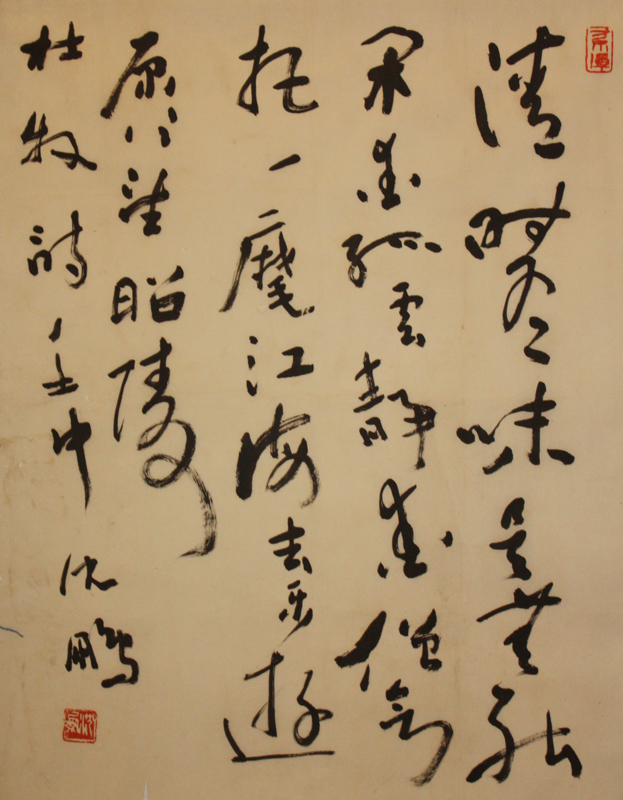 清時有味是無能
閑愛孤雲靜愛僧欲
把一麾江海去樂遊
原上望昭陵
杜牧詩壬申沈鵬